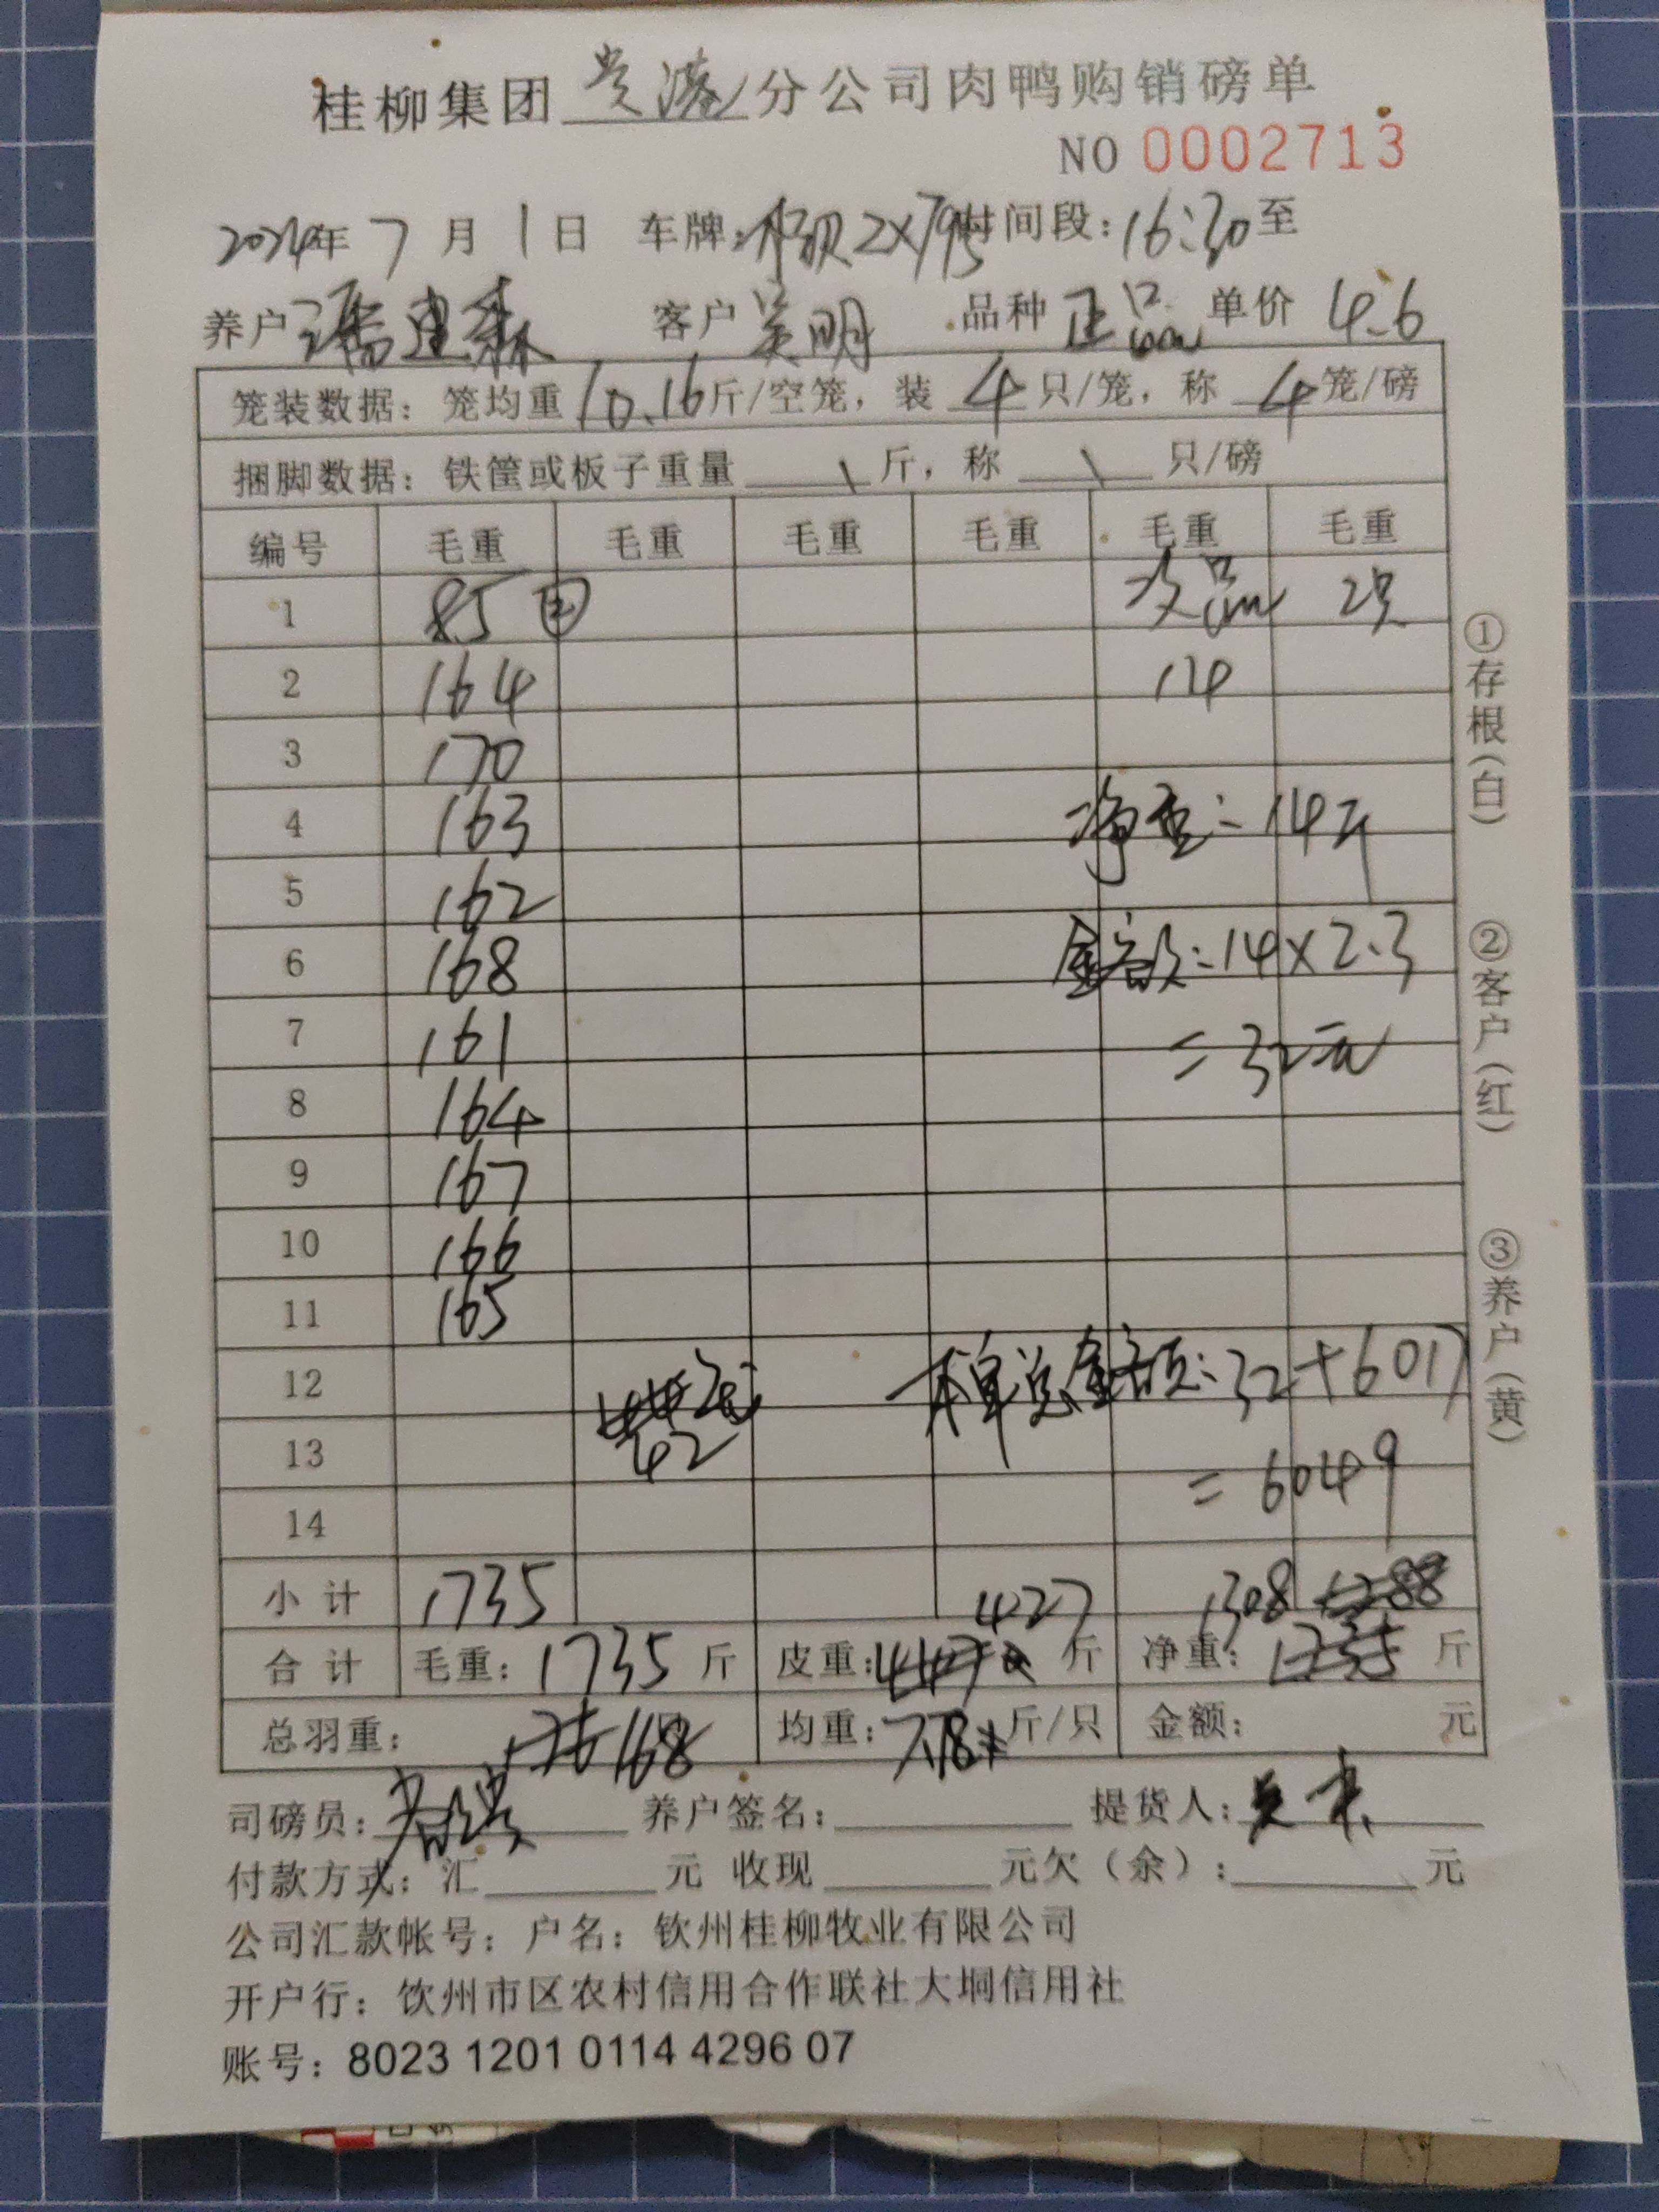 桂柳集团 贵港 分公司肉鸭购销磅单
NO 0002713
2024年 7 月 1 日 车牌: 2X795 时间段: 16:30 至
养户 潘建森 客户 吴明 品种 正品 单价 4.6
笼装数据: 笼均重 10.16 斤/空笼, 装 4 只/笼, 称 4 笼/磅
捆脚数据: 铁筐或板子重量 \ 斤, 称 \ 只/磅
编号 毛重 毛重 毛重 毛重 毛重 毛重
1 85 ② 次品 2只
2 164 14
3 170
4 163 净重: 14斤
5 162
6 168 金额: 14×2.3
7 161 = 32元
8 164
9 167
10 166
11 165
12 本单总金额: 32+6017
13 42 = 6049
14
小计 1735 427 1308
合计 毛重: 1735 斤 皮重: 斤 净重: 斤
总羽重: 168 均重: 7.78 斤/只 金额: 元
司磅员: 养户签名: 提货人:
付款方式: 汇 元 收现 元欠(余): 元
公司汇款帐号: 户名: 钦州桂柳牧业有限公司
开户行: 饮州市区农村信用合作联社大垌信用社
账号: 8023 1201 0114 4296 07
①存根(白) ②客户(红) ③养户(黄)